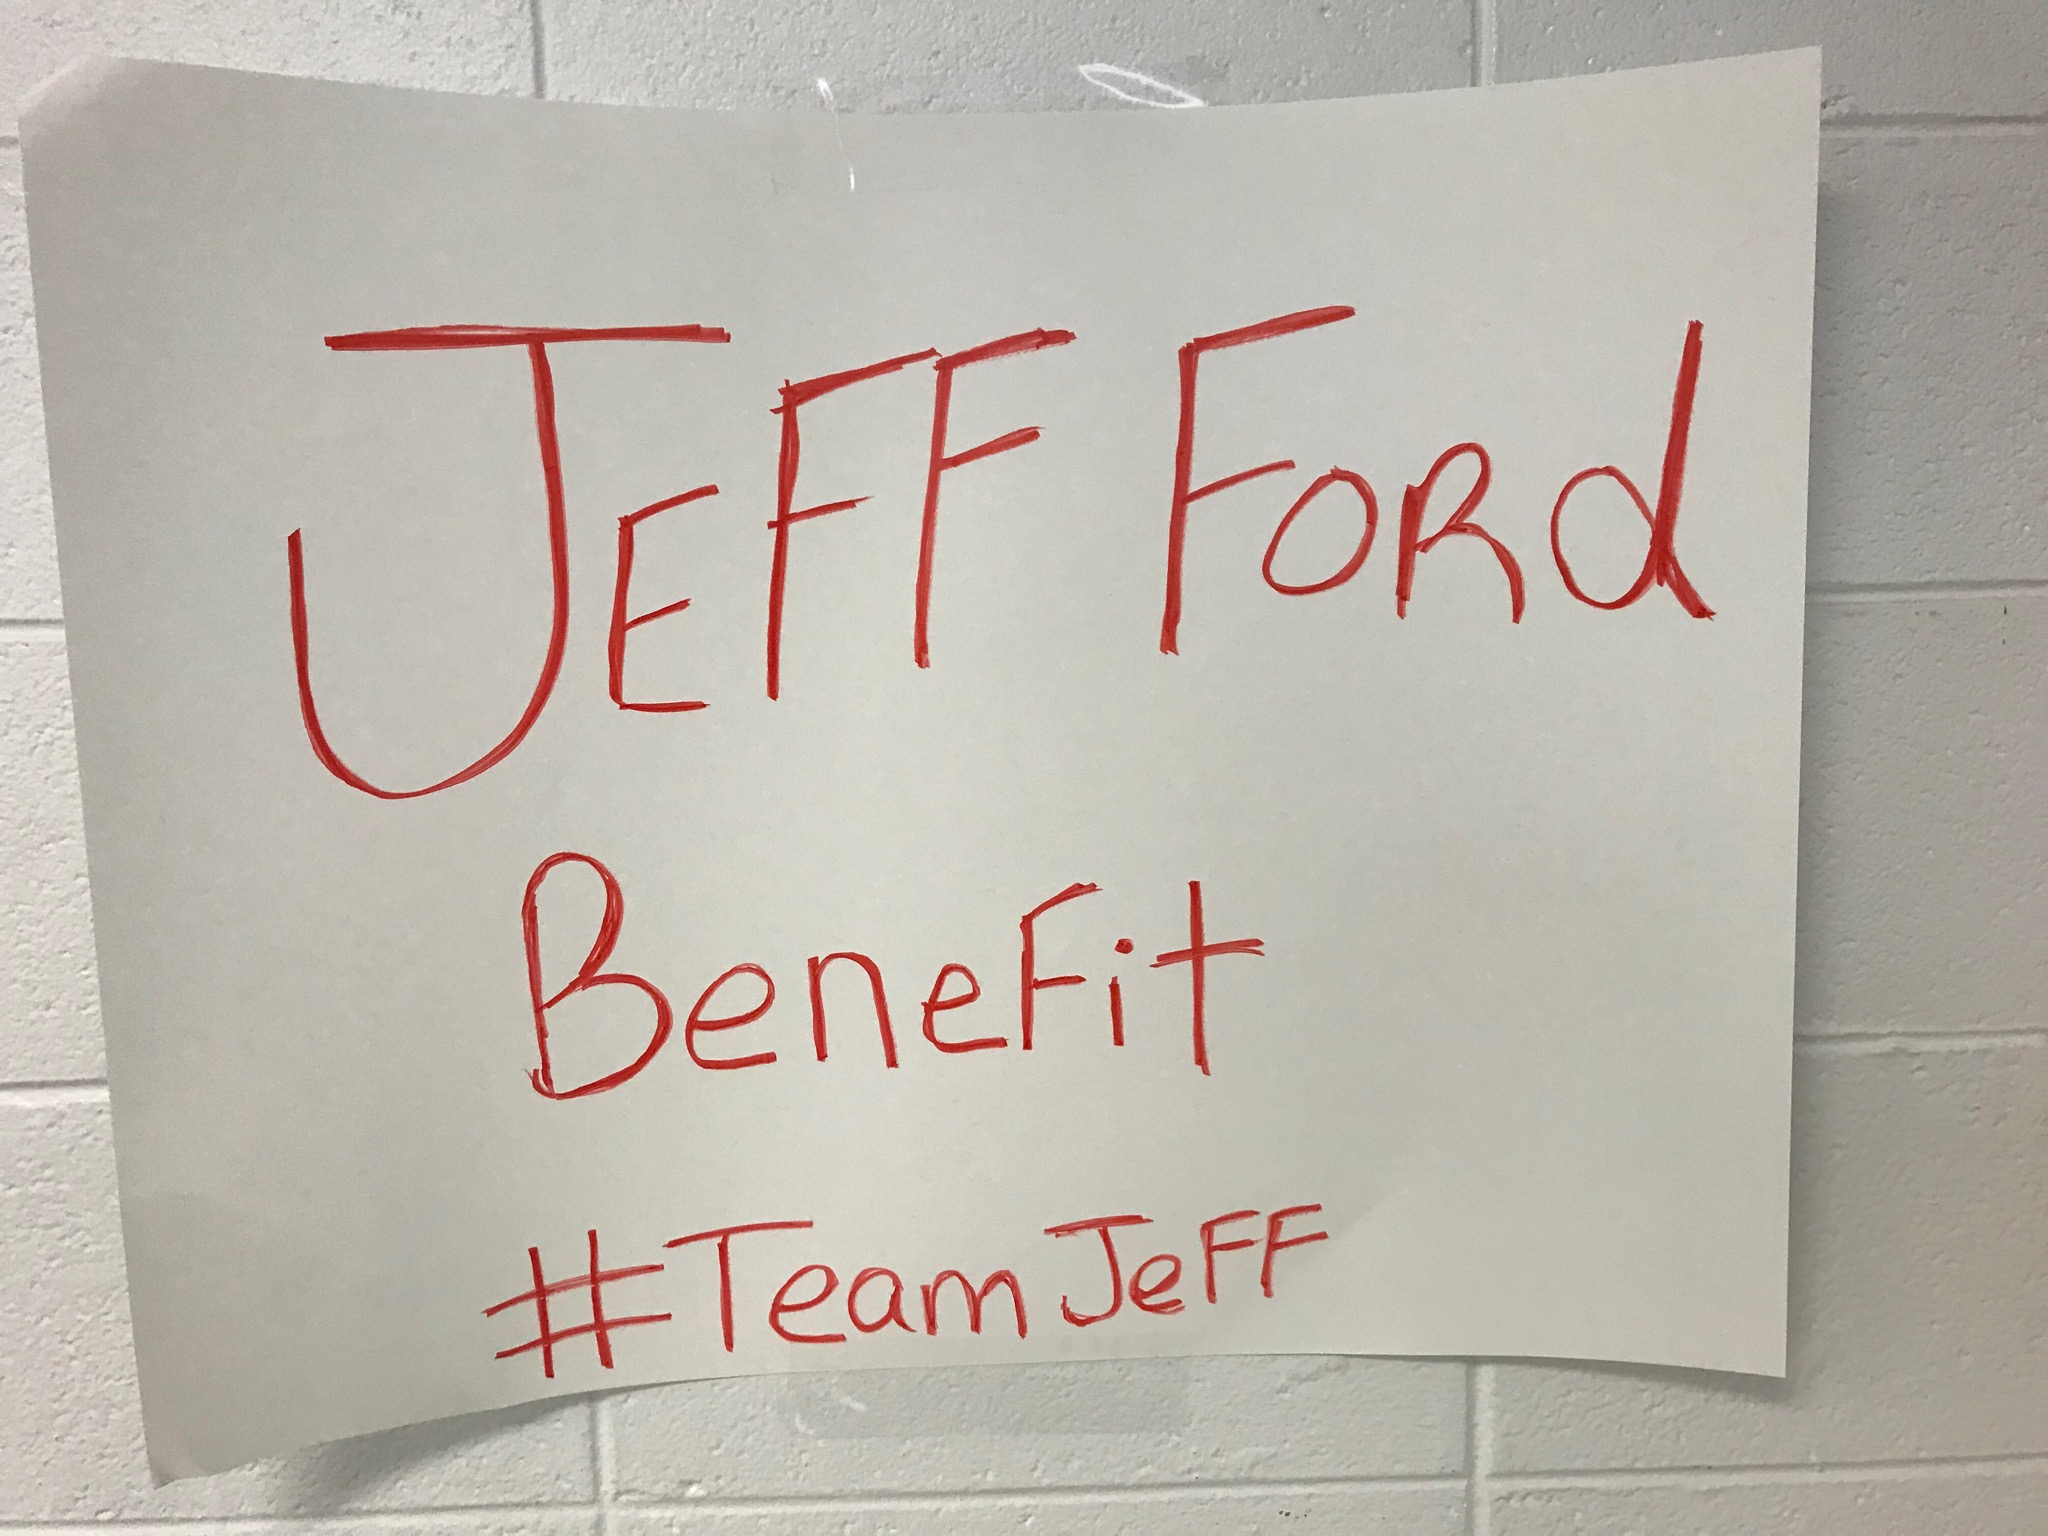 JEFF FORd
BeneFit
#Team JeFF